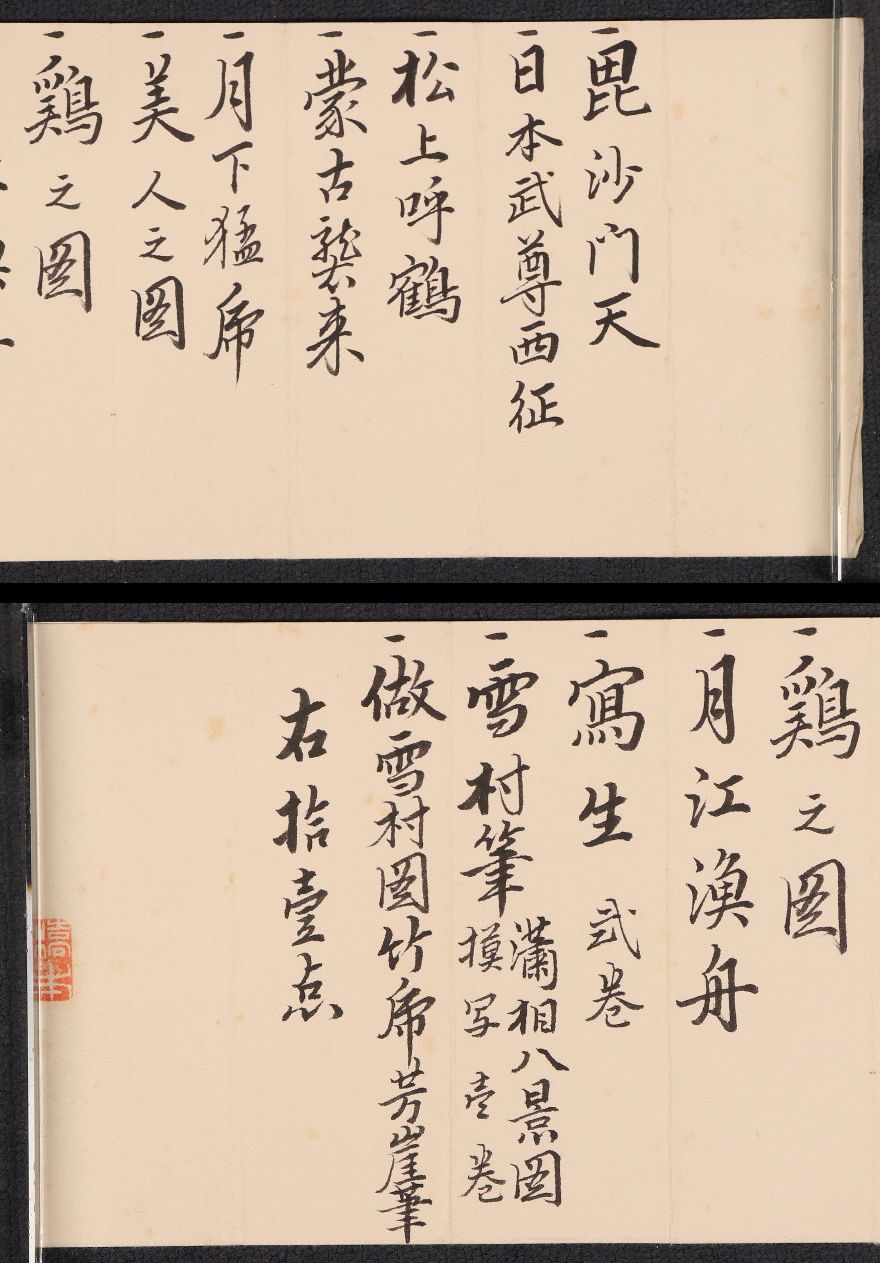 一毘沙門天
一日本武尊西征
一松上呼鶴
一蒙古襲来
一月下猛虎
一美人之図
一鶏之図
一鶏之図
一月江漁舟
一寫生 弐巻
一雪村筆
瀟相八景図
摸写壱巻
一倣雪村図竹虎芳崖筆
右拾壹点